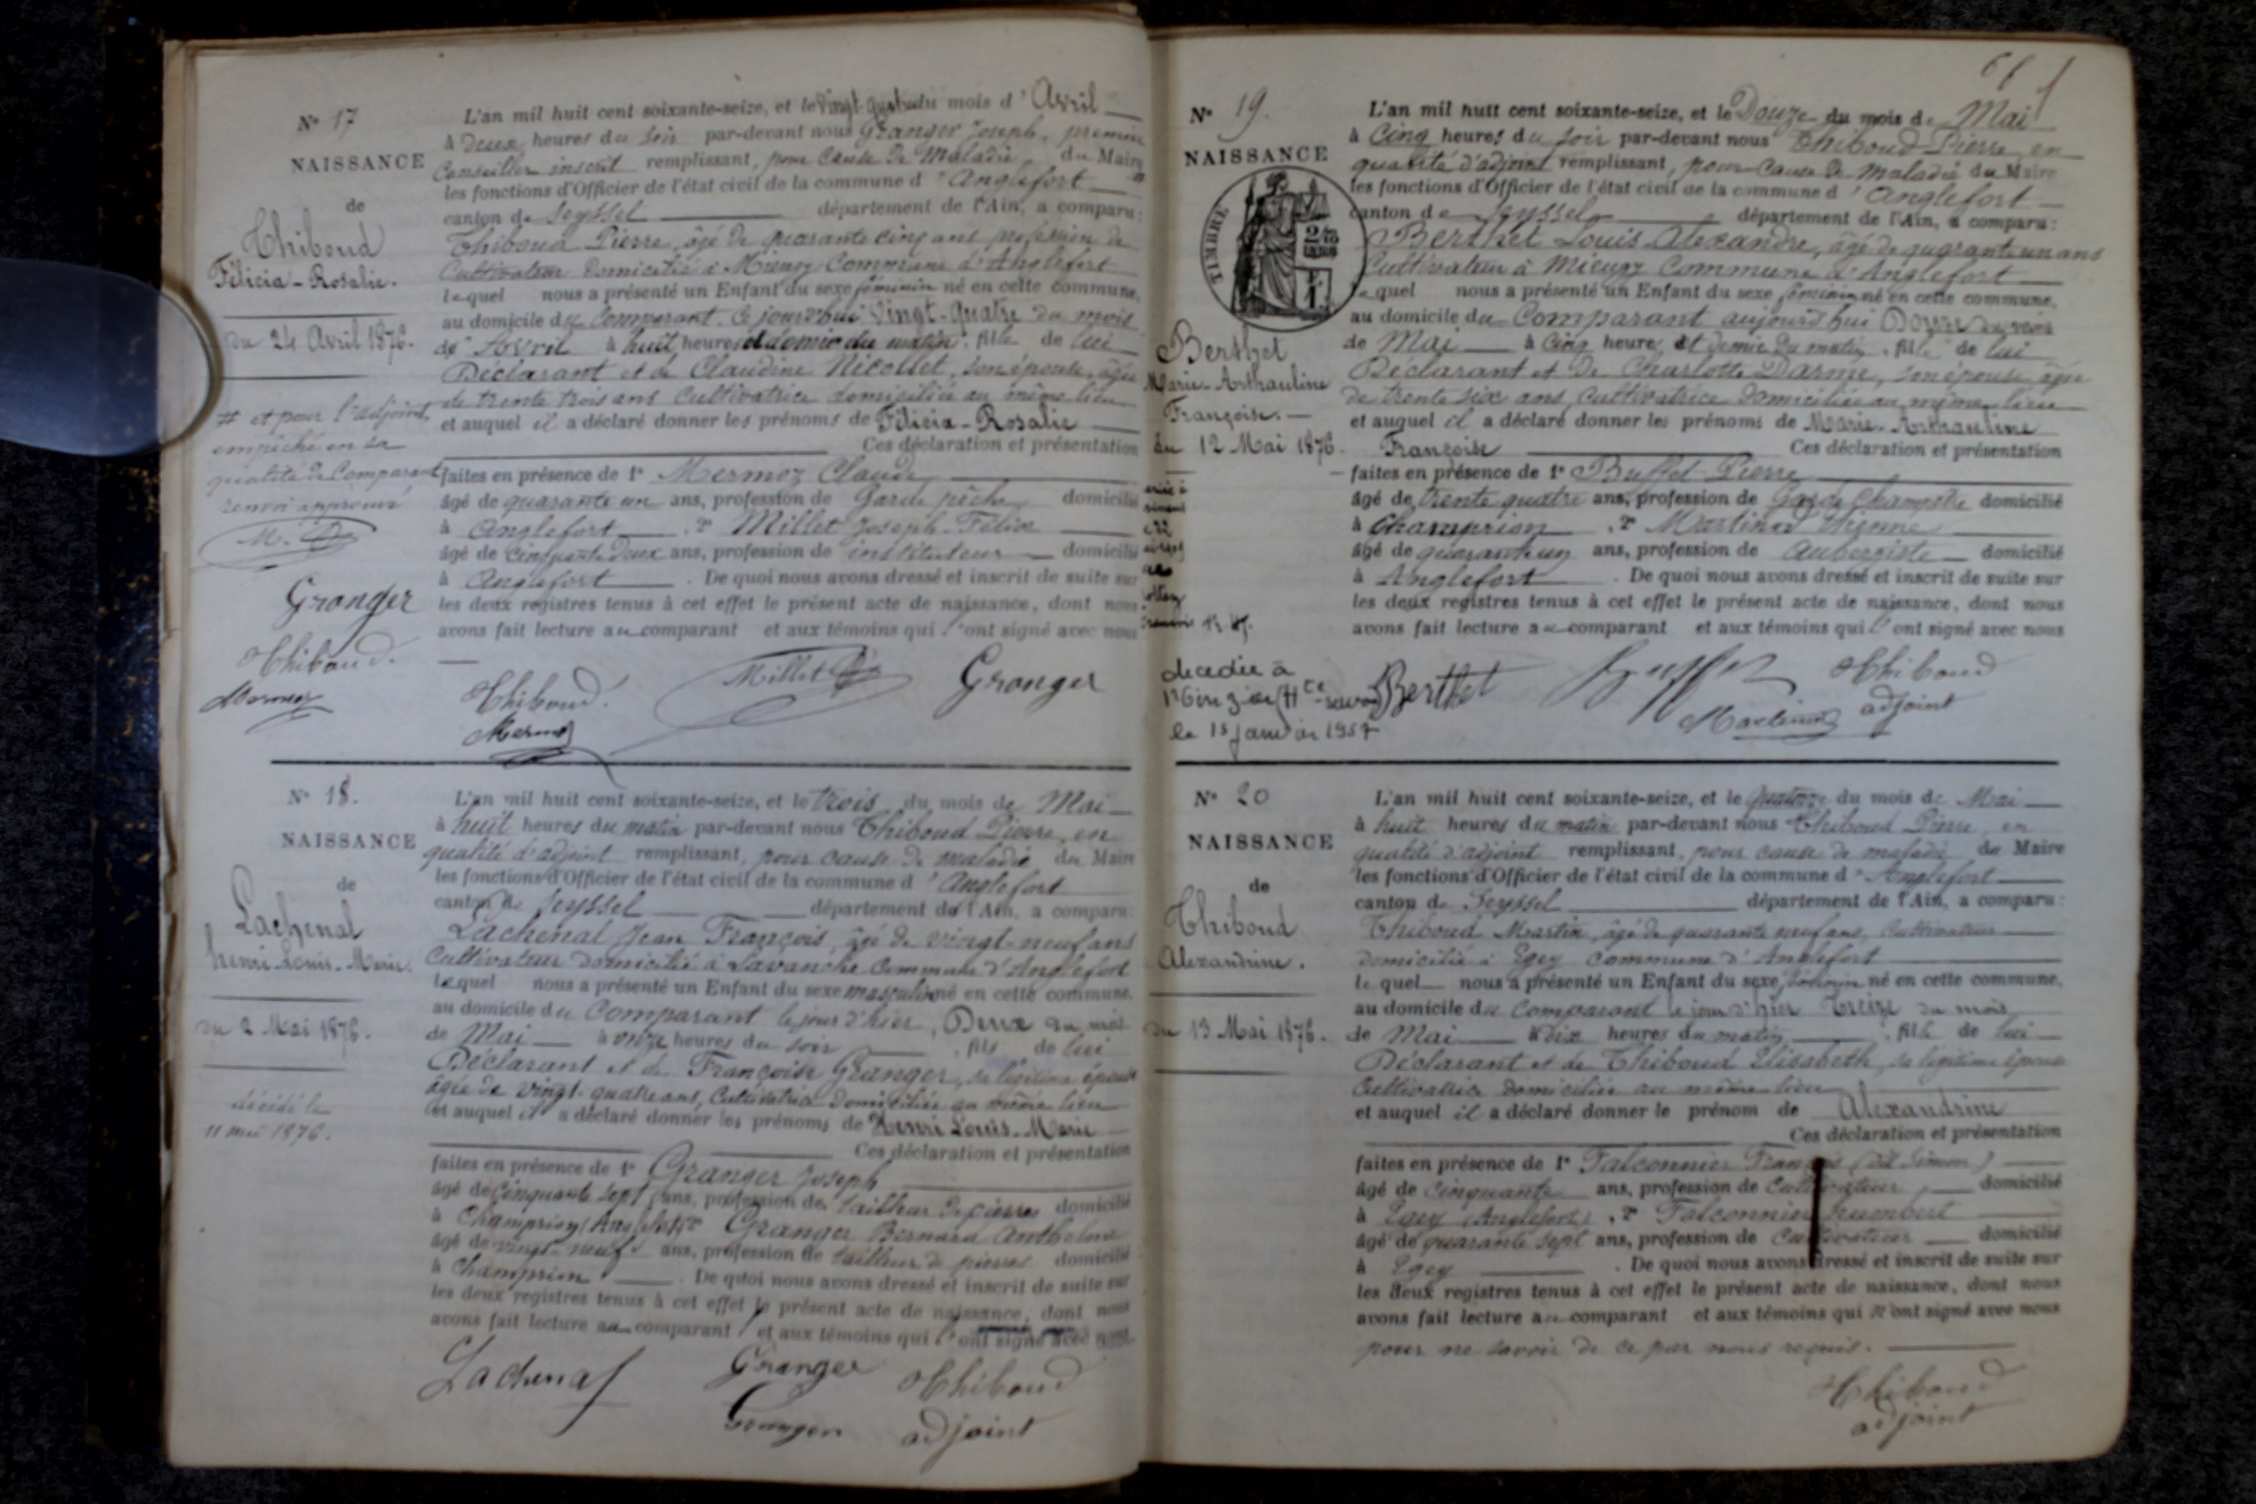 Nº 17
NAISSANCE
de
Thiboud
Félicia-Rosalie.
du 24 Avril 1876.
# et pour l'adjoint
empêché en sa
qualité de Comparant
renvoi approuvé
Granger
Thiboud.
Mermoz
L'an mil huit cent soixante-seize, et le vingt-quatre du mois d'Avril
à deux heures du soir par-devant nous Granger Joseph, premier
Conseiller inscrit remplissant, pour cause de Maladie du Maire #
les fonctions d'Officier de l'état civil de la commune d'Anglefort
canton de Seyssel département de l'Ain, a comparu:
Thiboud Pierre, âgé de quarante cinq ans profession de
Cultivateur domicilié à Mieugy Commune d'Anglefort
lequel nous a présenté un Enfant du sexe féminin né en cette commune,
au domicile du Comparant. Ce jourd'hui Vingt-Quatre du mois
de Avril à huit heures et demie du matin, fille de lui
Déclarant et de Claudine Nicollet, son épouse, âgée
de trente trois ans Cultivatrice domiciliée au même lieu
et auquel il a déclaré donner les prénoms de Félicia-Rosalie
Ces déclaration et présentation
faites en présence de 1º Mermoz Claude
âgé de quarante un ans, profession de Garde pêche domicilié
à Anglefort, 2º Millet Joseph-Félix
âgé de cinquante deux ans, profession de instituteur domicilié
à Anglefort. De quoi nous avons dressé et inscrit de suite sur
les deux registres tenus à cet effet le présent acte de naissance, dont nous
avons fait lecture au comparant et aux témoins qui l'ont signé avec nous
Thiboud. Millet Granger
Mermoz
Nº 18.
NAISSANCE
de
Lachenal
henri-Louis-Marie.
du 2 Mai 1876.
décédé le
11 mai 1876.
L'an mil huit cent soixante-seize, et le trois du mois de Mai
à huit heures du matin par-devant nous Thiboud Pierre, en
qualité d'adjoint remplissant, pour cause de maladie du Maire
les fonctions d'Officier de l'état civil de la commune d'Anglefort
canton de Seyssel département de l'Ain, a comparu:
Lachenal Jean François, âgé de vingt-neuf ans
Cultivateur domicilié à Lavanche Commune d'Anglefort
lequel nous a présenté un Enfant du sexe masculin né en cette commune,
au domicile du Comparant le jour d'hier, Deux du mois
de Mai à onze heures du soir, fils de lui
Déclarant et de Françoise Granger, sa légitime épouse
âgée de vingt-quatre ans, Cultivatrice domiciliée au même lieu
et auquel il a déclaré donner les prénoms de Henri Louis-Marie
Ces déclaration et présentation
faites en présence de 1º Granger Joseph
âgé de cinquante sept ans, profession de tailleur de pierres domicilié
à Champrion (Anglefort) 2º Granger Bernard Anthelme
âgé de vingt-neuf ans, profession de tailleur de pierres domicilié
à Champrion. De quoi nous avons dressé et inscrit de suite sur
les deux registres tenus à cet effet le présent acte de naissance, dont nous
avons fait lecture au comparant et aux témoins qui l'ont signé avec nous.
Lachenal Granger Thiboud
Granger adjoint
Nº 19.
NAISSANCE
TIMBRE
Berthet
Marie-Arthauline
Françoise.
du 12 Mai 1876.
décédée à
le 15 janvier 1957
L'an mil huit cent soixante-seize, et le Douze du mois de Mai
à Cinq heures du soir par-devant nous Thiboud Pierre, en
qualité d'adjoint remplissant, pour cause de Maladie du Maire
les fonctions d'Officier de l'état civil de la commune d'Anglefort
canton de Seyssel département de l'Ain, a comparu:
Berthet Louis Alexandre, âgé de quarante un ans
Cultivateur à Mieugy Commune d'Anglefort
lequel nous a présenté un Enfant du sexe féminin né en cette commune,
au domicile du Comparant aujourd'hui Douze du mois
de Mai à Cinq heures et demie du matin, fille de lui
Déclarant et de Charlotte Darme, son épouse âgée
de trente six ans, Cultivatrice domiciliée au même lieu
et auquel il a déclaré donner les prénoms de Marie-Arthauline
Françoise Ces déclaration et présentation
faites en présence de 1º Buffet Pierre
âgé de trente quatre ans, profession de Garde Champêtre domicilié
à Champrion, 2º Martinod
âgé de quarante un ans, profession de Aubergiste domicilié
à Anglefort. De quoi nous avons dressé et inscrit de suite sur
les deux registres tenus à cet effet le présent acte de naissance, dont nous
avons fait lecture au comparant et aux témoins qui l'ont signé avec nous
Berthet Buffet Thiboud
Martinod adjoint
Nº 20
NAISSANCE
de
Thiboud
Alexandrine.
du 13 Mai 1876.
L'an mil huit cent soixante-seize, et le Quatorze du mois de Mai
à huit heures du matin par-devant nous Thiboud Pierre, en
qualité d'adjoint remplissant, pour cause de maladie du Maire
les fonctions d'Officier de l'état civil de la commune d'Anglefort
canton de Seyssel département de l'Ain, a comparu:
Thiboud Martin, âgé de quarante neuf ans, Cultivateur
domicilié à Egey Commune d'Anglefort
lequel nous a présenté un Enfant du sexe féminin né en cette commune,
au domicile du Comparant le jour d'hier Treize du mois
de Mai à dix heures du matin, fille de lui
Déclarant et de Thiboud Elisabeth, sa légitime épouse
Cultivatrice domiciliée au même lieu
et auquel il a déclaré donner le prénom de Alexandrine
Ces déclaration et présentation
faites en présence de 1º Falconnier François (dit Simon)
âgé de cinquante ans, profession de Cultivateur domicilié
à Egey (Anglefort), 2º Falconnier humbert
âgé de quarante sept ans, profession de Cultivateur domicilié
à Egey. De quoi nous avons dressé et inscrit de suite sur
les deux registres tenus à cet effet le présent acte de naissance, dont nous
avons fait lecture au comparant et aux témoins qui n'ont signé avec nous
pour ne savoir de ce par nous requis.
Thiboud
adjoint